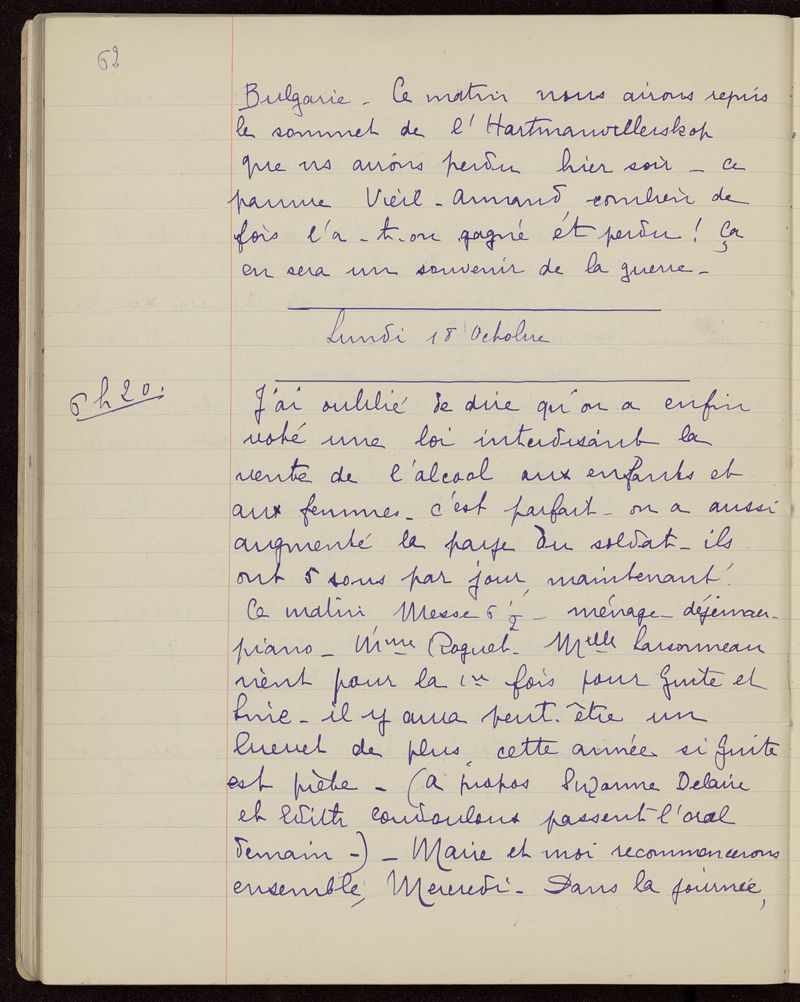 62
Bulgarie - Ce matin nous avions repris
le sommet de l'Hartmanwillerskop
que ns avions perdu hier soir - ce
pauvre Vieil-Armand combien de
fois l'a-t-on gagné et perdu ! ça
en sera un souvenir de la guerre -
Lundi 18 Octobre
6h20.
J'ai oublié de dire qu'on a enfin
voté une loi interdisant la
vente de l'alcool aux enfants et
aux femmes - c'est parfait - on a aussi
augmenté la paye du soldat - ils
ont 5 sous par jour maintenant !
Ce matin, Messe 6 ½ - ménage - déjeuner -
piano - Mme Roquet - Melle Larsonneau
vient pour la 1re fois pour Guite et
Luce - il y aura peut-être un
brevet de plus cette année si Guite
est prête - (à propos Suzanne Delaire
et Edith passent l'oral
demain -) - Marie et moi recommencerons
ensemble, Mercredi - Dans la journée,